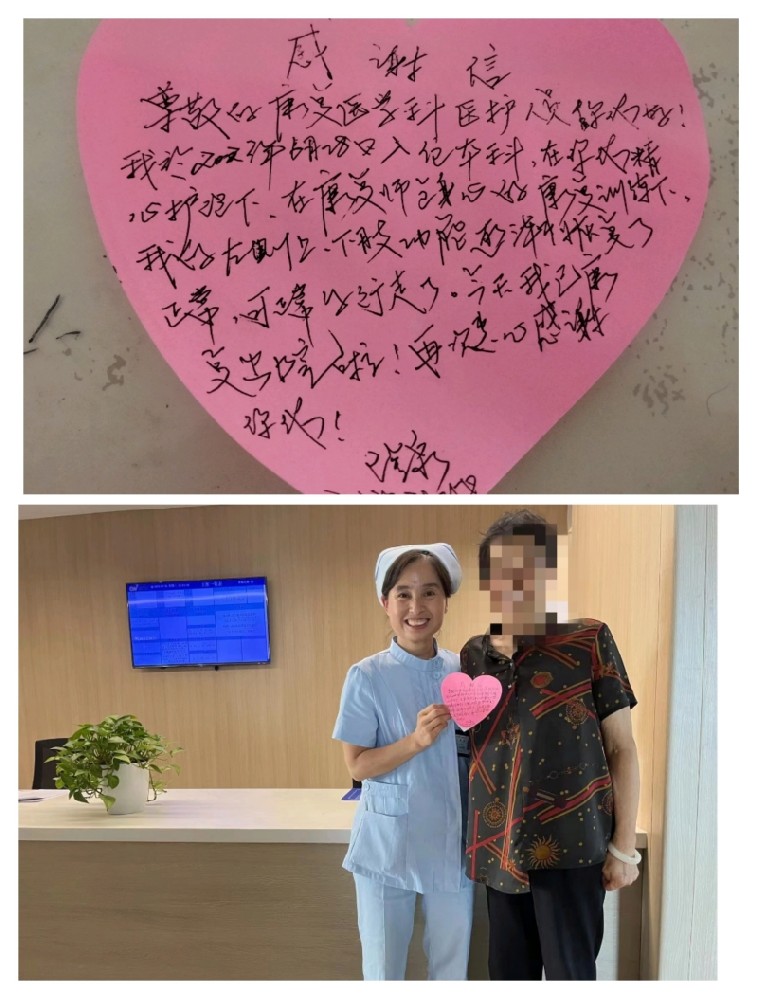 感谢信
尊敬的康复医学科医护人员你们好!
我於2023年6月28日入住本科,在你们精
心护理下、在康复师全身心的康复训练下、
我的左侧上、下肢功能逐渐恢复了
正常,可喜的行走了。今天我已康
复出院啦!再次衷心感谢
你们!